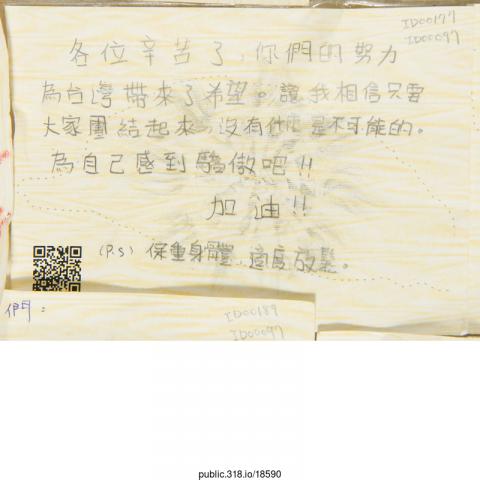 ID00177
ID00097
各位辛苦了，你們的努力
為台灣帶來了希望。讓我相信只要
大家團結起來，沒有什麼是不可能的。
為自己感到驕傲吧!!
加油!!
(P.S) 保重身體，適度放鬆。
們：
ID00189
ID00097
public.318.io/18590